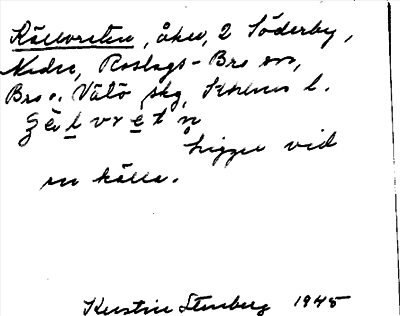 Källvreten, åker, 2 Söderby,
Nedre, Roslags-Bro sn,
Bro o. Vätö skg, Sthlms l.
ʒ ä l v r e t n
ligger vid
en källa.
Kerstin Stenberg 1945